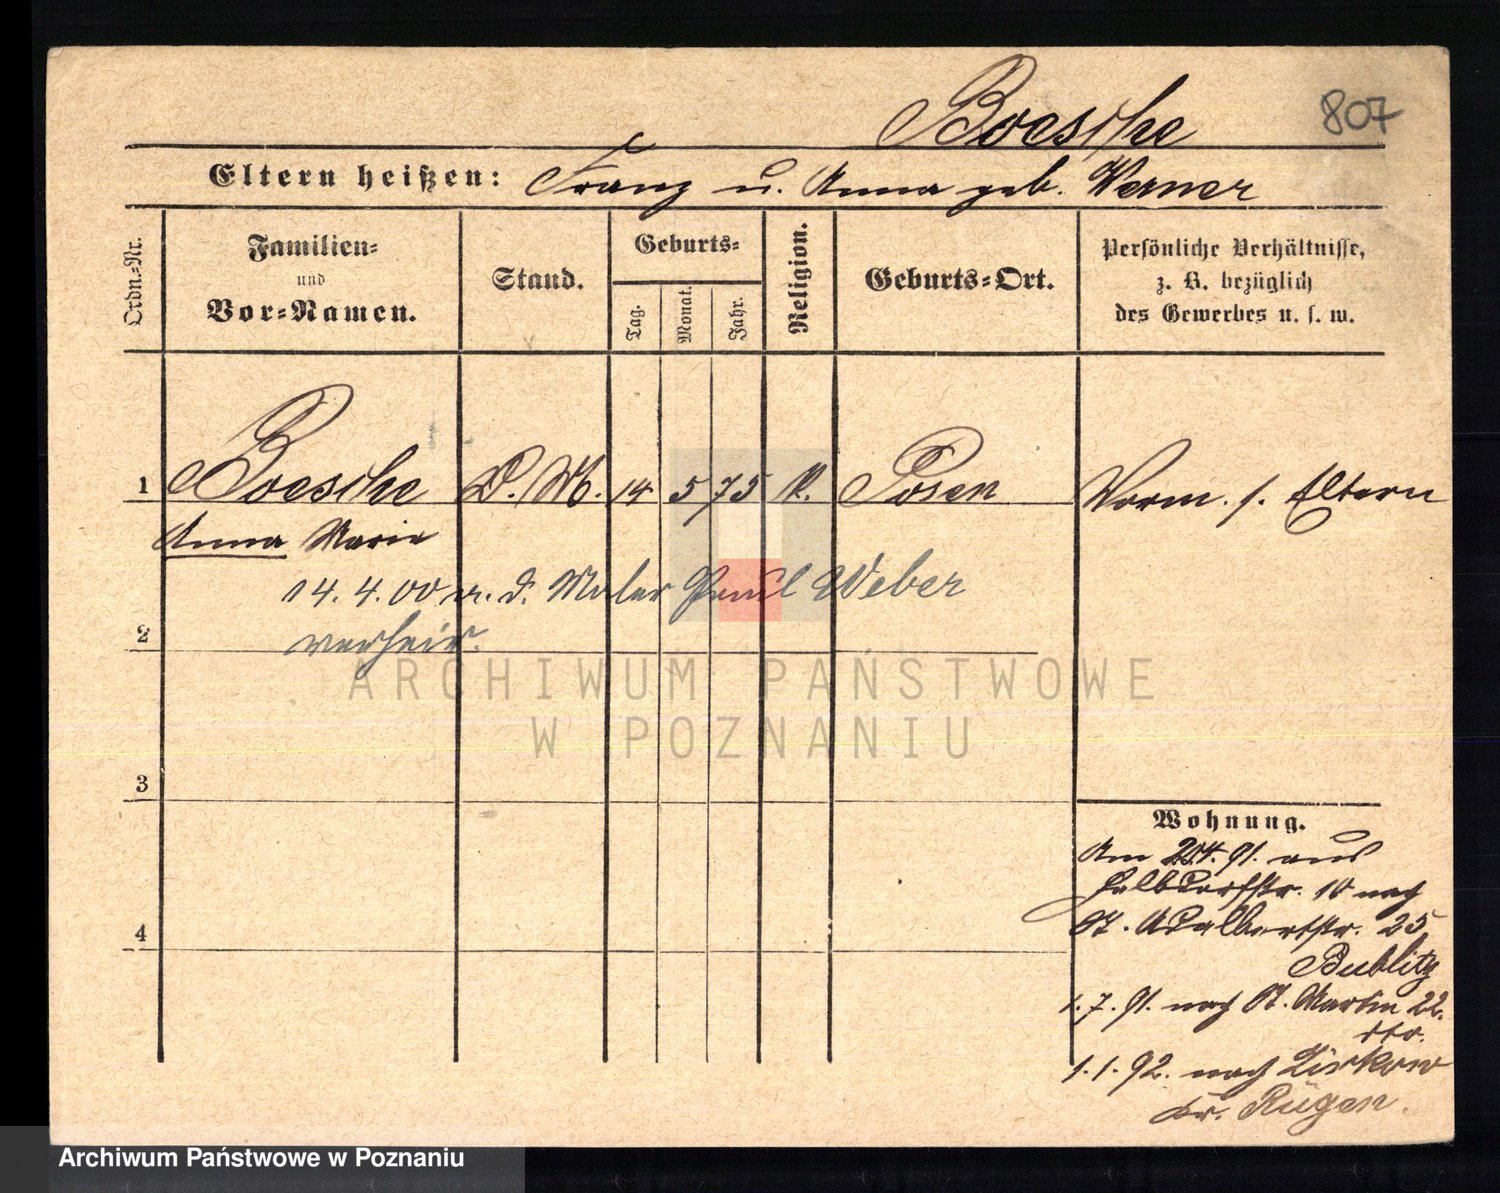 Boesche
807
Eltern heißen: Franz u. Anna geb. Werner
Ordn.-Nr.
Familien-
und
Vor-Namen.
Stand.
Geburts-
Tag.
Monat.
Jahr.
Religion.
Geburts-Ort.
Persönliche Verhältnisse,
z. B. bezüglich
des Gewerbes u. s. w.
1 Boesche D. M. 14 5 75 K. Posen Vorm. s. Eltern
Anna Marie
14.4.00 m. d. Maler Paul Weber
2 verheir.
ARCHIWUM PAŃSTWOWE
W POZNANIU
3
4
Wohnung.
Am 20.4.91. aus
Halbdorfstr. 10 nach
St. Adalbertstr. 25
Bublitz
1.7.91. nach St. Martin 22.
1.1.92. nach Zirkow
Kr. Rügen.
Archiwum Państwowe w Poznaniu